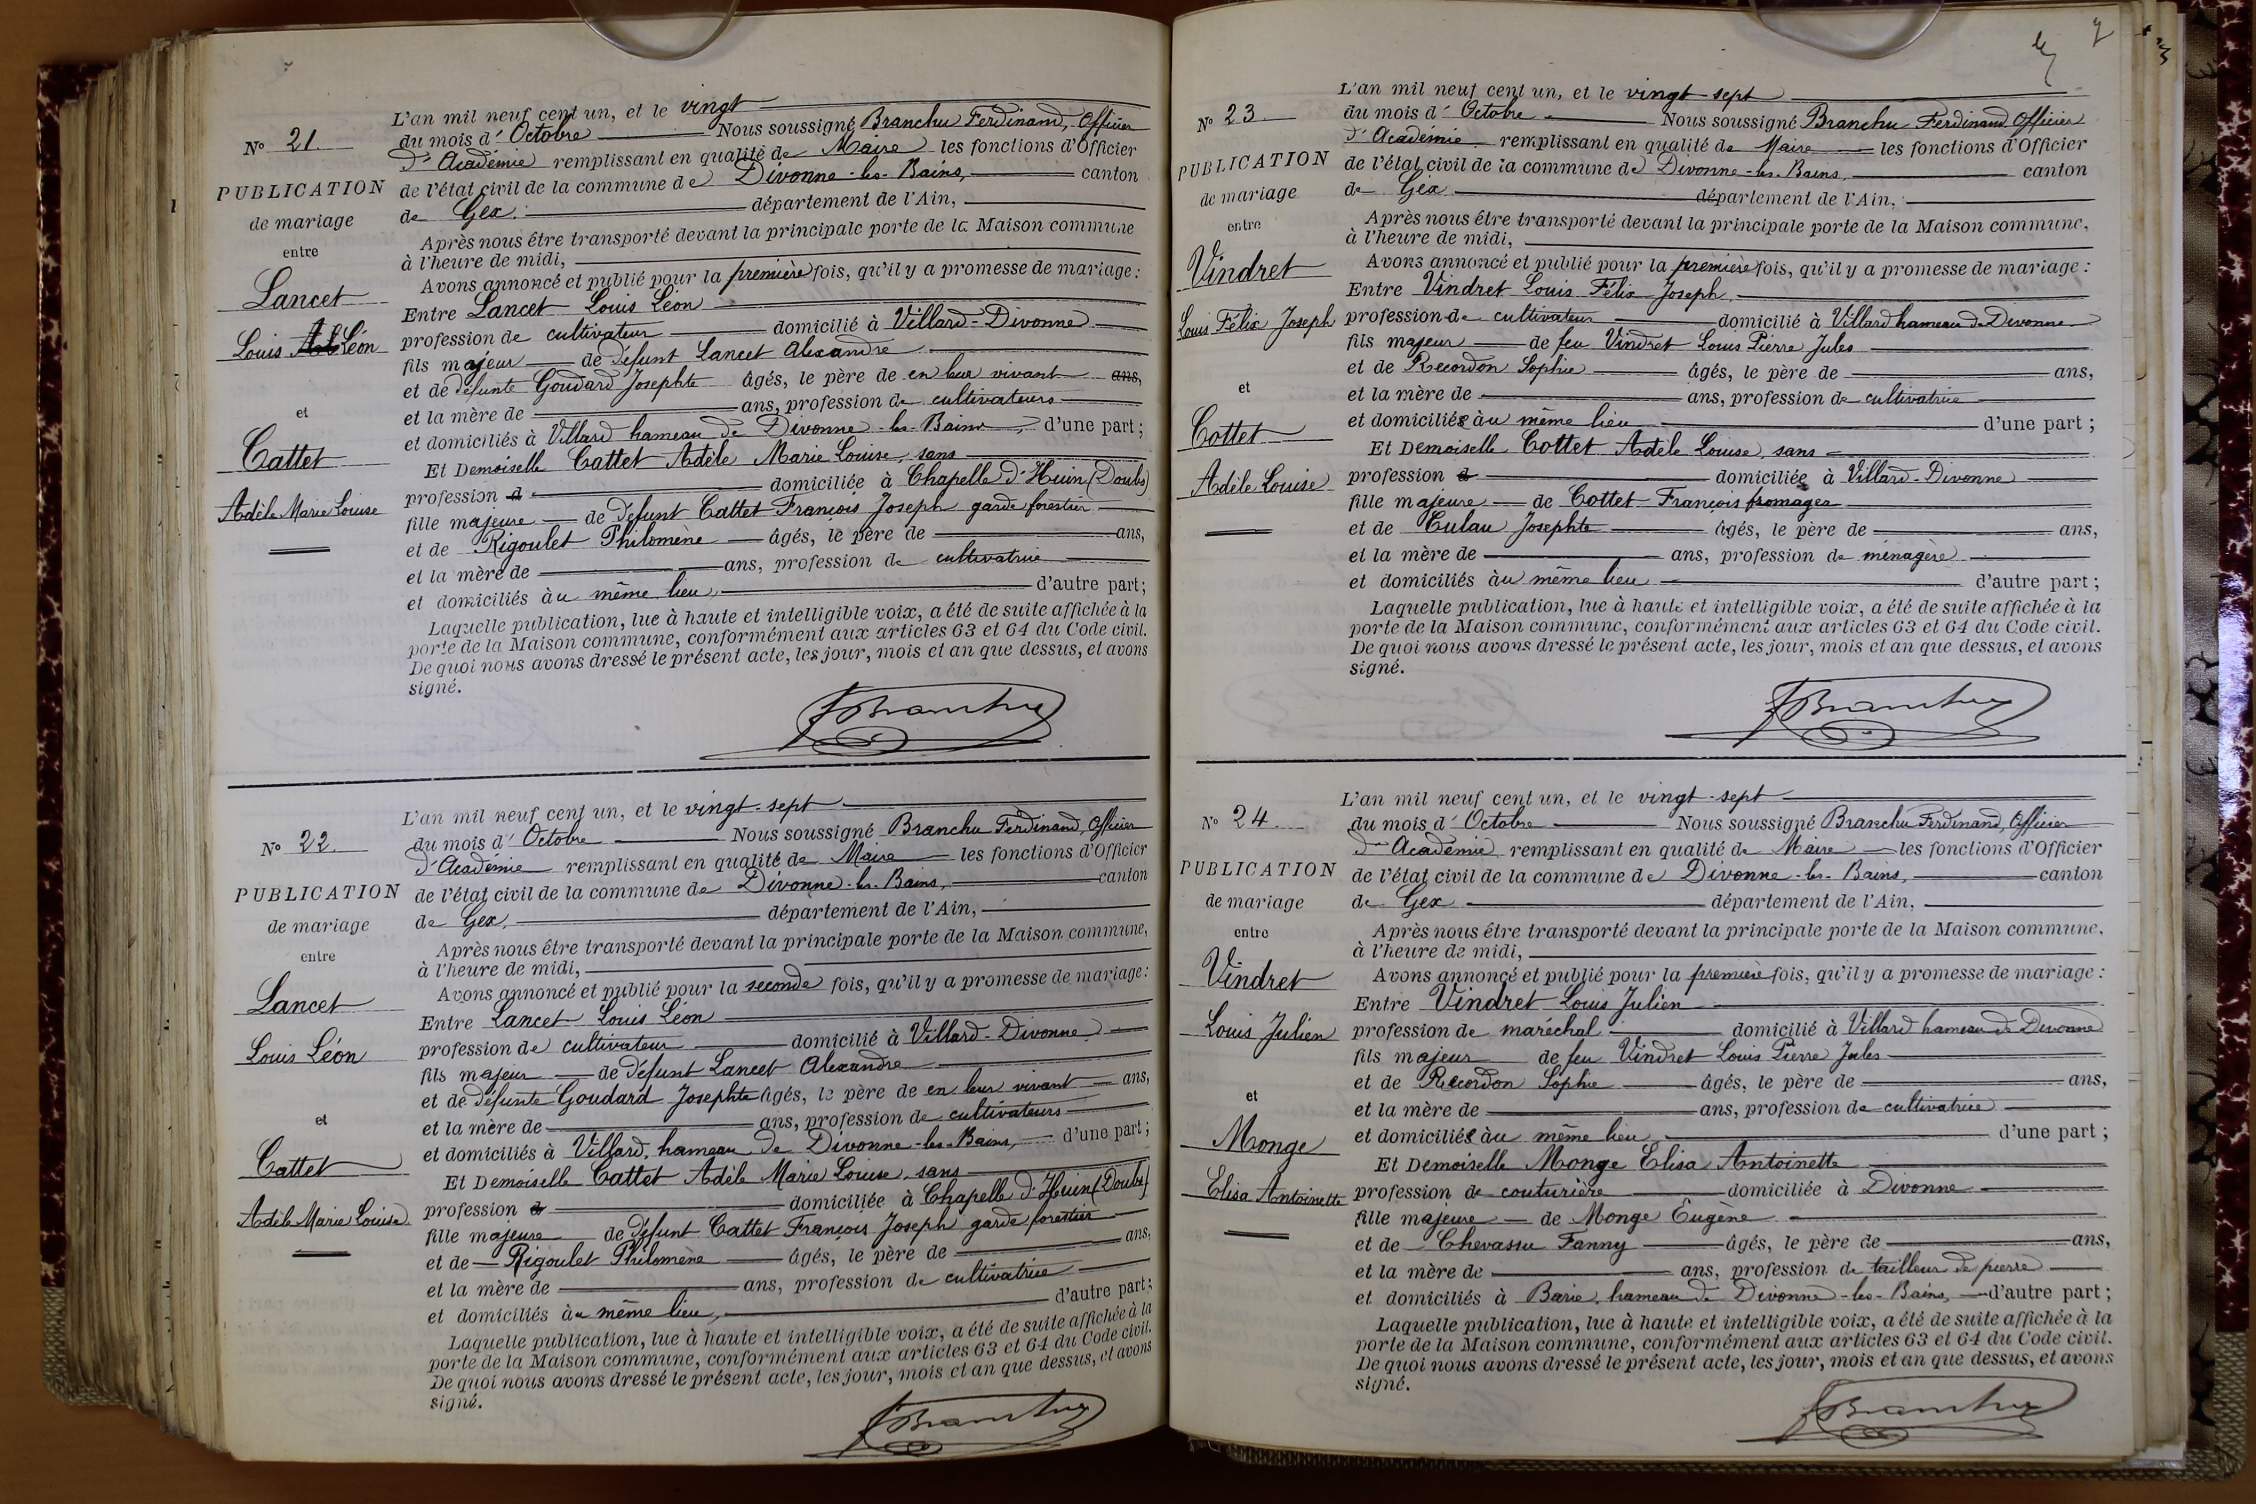 N° 21
PUBLICATION
de mariage
entre
Lancet
Louis Léon
et
Cattet
Adèle Marie Louise
L'an mil neuf cent un, et le vingt
du mois d' Octobre Nous soussigné Branchu Ferdinand, Officier
d'Académie remplissant en qualité de Maire les fonctions d'Officier
de l'état civil de la commune de Divonne-les-Bains, canton
de Gex, département de l'Ain,
Après nous être transporté devant la principale porte de la Maison commune
à l'heure de midi,
Avons annoncé et publié pour la première fois, qu'il y a promesse de mariage :
Entre Lancet Louis Léon
profession de cultivateur domicilié à Villard-Divonne
fils majeur de défunt Lancet Alexandre
et de défunte Goudard Josephte âgés, le père de en leur vivant ans,
et la mère de ans, profession de cultivateurs
et domiciliés à Villard hameau de Divonne-les-Bains, d'une part ;
Et Demoiselle Cattet Adèle Marie Louise, sans
profession d domiciliée à Chapelle d'Huin (Doubs)
fille majeure de défunt Cattet François Joseph garde forestier
et de Rigoulet Philomène âgés, le père de ans,
et la mère de ans, profession de cultivatrice
et domiciliés au même lieu, d'autre part ;
Laquelle publication, lue à haute et intelligible voix, a été de suite affichée à la
porte de la Maison commune, conformément aux articles 63 et 64 du Code civil.
De quoi nous avons dressé le présent acte, les jour, mois et an que dessus, et avons
signé.
FBranchu
N° 22
PUBLICATION
de mariage
entre
Lancet
Louis Léon
et
Cattet
Adèle Marie Louise
L'an mil neuf cent un, et le vingt-sept
du mois d' Octobre Nous soussigné Branchu Ferdinand, Officier
d'Académie remplissant en qualité de Maire les fonctions d'Officier
de l'état civil de la commune de Divonne-les-Bains, canton
de Gex, département de l'Ain,
Après nous être transporté devant la principale porte de la Maison commune,
à l'heure de midi,
Avons annoncé et publié pour la seconde fois, qu'il y a promesse de mariage :
Entre Lancet Louis Léon
profession de cultivateur domicilié à Villard-Divonne
fils majeur de défunt Lancet Alexandre
et de défunte Goudard Josephte âgés, le père de en leur vivant ans,
et la mère de ans, profession de cultivateurs
et domiciliés à Villard, hameau de Divonne-les-Bains, d'une part ;
Et Demoiselle Cattet Adèle Marie Louise, sans
profession de domiciliée à Chapelle d'Huin (Doubs)
fille majeure de défunt Cattet François Joseph garde forestier
et de Rigoulet Philomène âgés, le père de ans,
et la mère de ans, profession de cultivatrice
et domiciliés au même lieu, d'autre part ;
Laquelle publication, lue à haute et intelligible voix, a été de suite affichée à la
porte de la Maison commune, conformément aux articles 63 et 64 du Code civil.
De quoi nous avons dressé le présent acte, les jour, mois et an que dessus, et avons
signé.
FBranchu
N° 23
PUBLICATION
de mariage
entre
Vindret
Louis Félix Joseph
et
Cottet
Adèle Louise
L'an mil neuf cent un, et le vingt-sept
du mois d' Octobre Nous soussigné Branchu Ferdinand Officier
d'Académie remplissant en qualité de Maire les fonctions d'Officier
de l'état civil de la commune de Divonne-les-Bains, canton
de Gex département de l'Ain,
Après nous être transporté devant la principale porte de la Maison commune,
à l'heure de midi,
Avons annoncé et publié pour la première fois, qu'il y a promesse de mariage :
Entre Vindret Louis Félix Joseph
profession de cultivateur domicilié à Villard hameau de Divonne
fils majeur de feu Vindret Louis Pierre Jules
et de Recordon Sophie âgés, le père de ans,
et la mère de ans, profession de cultivatrice
et domiciliée au même lieu d'une part ;
Et Demoiselle Cottet Adèle Louise, sans
profession d domiciliée à Villard-Divonne
fille majeure de Cottet François fromager
et de Culau Josephte âgés, le père de ans,
et la mère de ans, profession de ménagère
et domiciliés au même lieu d'autre part ;
Laquelle publication, lue à haute et intelligible voix, a été de suite affichée à la
porte de la Maison commune, conformément aux articles 63 et 64 du Code civil.
De quoi nous avons dressé le présent acte, les jour, mois et an que dessus, et avons
signé.
FBranchu
N° 24
PUBLICATION
de mariage
entre
Vindret
Louis Julien
et
Monge
Elisa Antoinette
L'an mil neuf cent un, et le vingt-sept
du mois d' Octobre Nous soussigné Branchu Ferdinand, Officier
d'Académie remplissant en qualité de Maire les fonctions d'Officier
de l'état civil de la commune de Divonne-les-Bains, canton
de Gex département de l'Ain,
Après nous être transporté devant la principale porte de la Maison commune,
à l'heure de midi,
Avons annoncé et publié pour la première fois, qu'il y a promesse de mariage :
Entre Vindret Louis Julien
profession de maréchal domicilié à Villard hameau de Divonne
fils majeur de feu Vindret Louis Pierre Jules
et de Recordon Sophie âgés, le père de ans,
et la mère de ans, profession de cultivatrice
et domiciliée au même lieu d'une part ;
Et Demoiselle Monge Elisa Antoinette
profession de couturière domiciliée à Divonne
fille majeure de Monge Eugène
et de Chevassu Fanny âgés, le père de ans,
et la mère de ans, profession de tailleur de pierre
et domiciliés à Barie, hameau de Divonne-les-Bains, d'autre part ;
Laquelle publication, lue à haute et intelligible voix, a été de suite affichée à la
porte de la Maison commune, conformément aux articles 63 et 64 du Code civil.
De quoi nous avons dressé le présent acte, les jour, mois et an que dessus, et avons
signé.
FBranchu